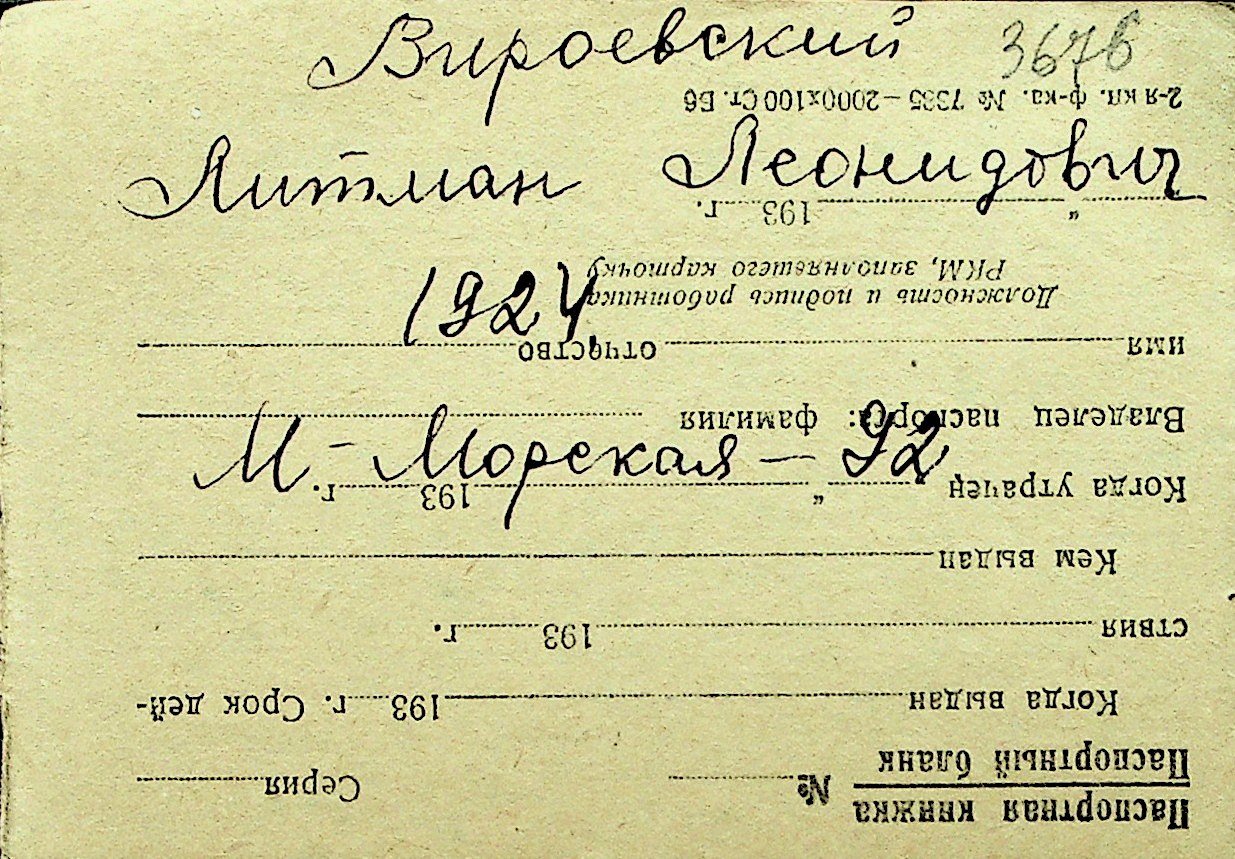 Вироевский 367в
Литман Леонидович
1924
М-Морская-92
Паспортная книжка
Паспортный бланк
№ Серия
Когда выдан 193 г. Срок дей-
ствия 193 г.
Кем выдан
Когда утрачен „ 193 г.
Владелец паспорта: фамилия
имя отчество
Должность и подпись работника
РКМ, заполнявшего карточку
„ 193 г.
2-я кп. ф-ка. № 7335—2000х100 Ст. Б6